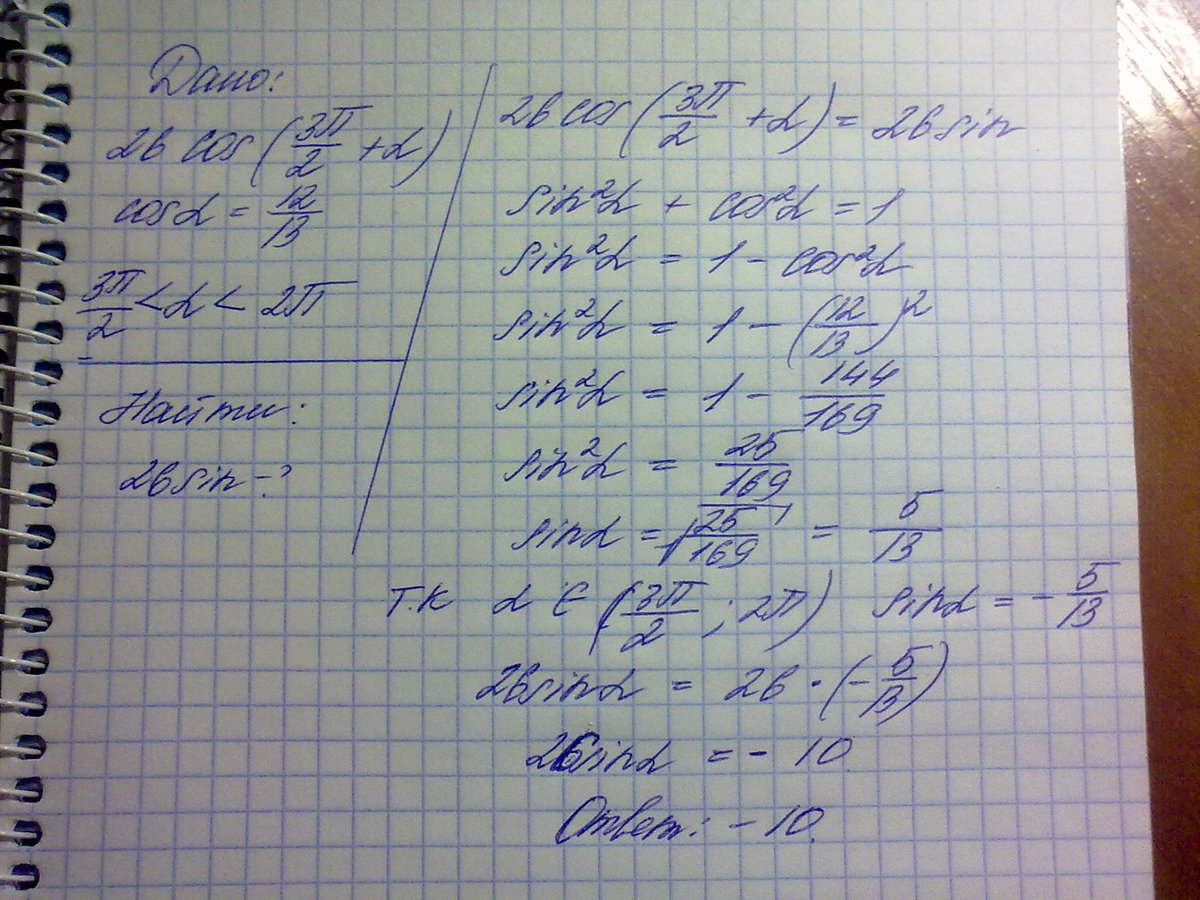 Дано:
26 cos(3π/2 + α)
cosα = 12/13
3π/2 < α < 2π
Найти:
26 sin - ?
26 cos(3π/2 + α) = 26 sin
sin²α + cos²α = 1
sin²α = 1 - cos²α
sin²α = 1 - (12/13)²
sin²α = 1 - 144/169
sin²α = 25/169
sinα = √(25/169) = 5/13
Т.к α ∈ (3π/2 ; 2π) sinα = -5/13
26 sinα = 26 · (-5/13)
26 sinα = - 10
Ответ: - 10.